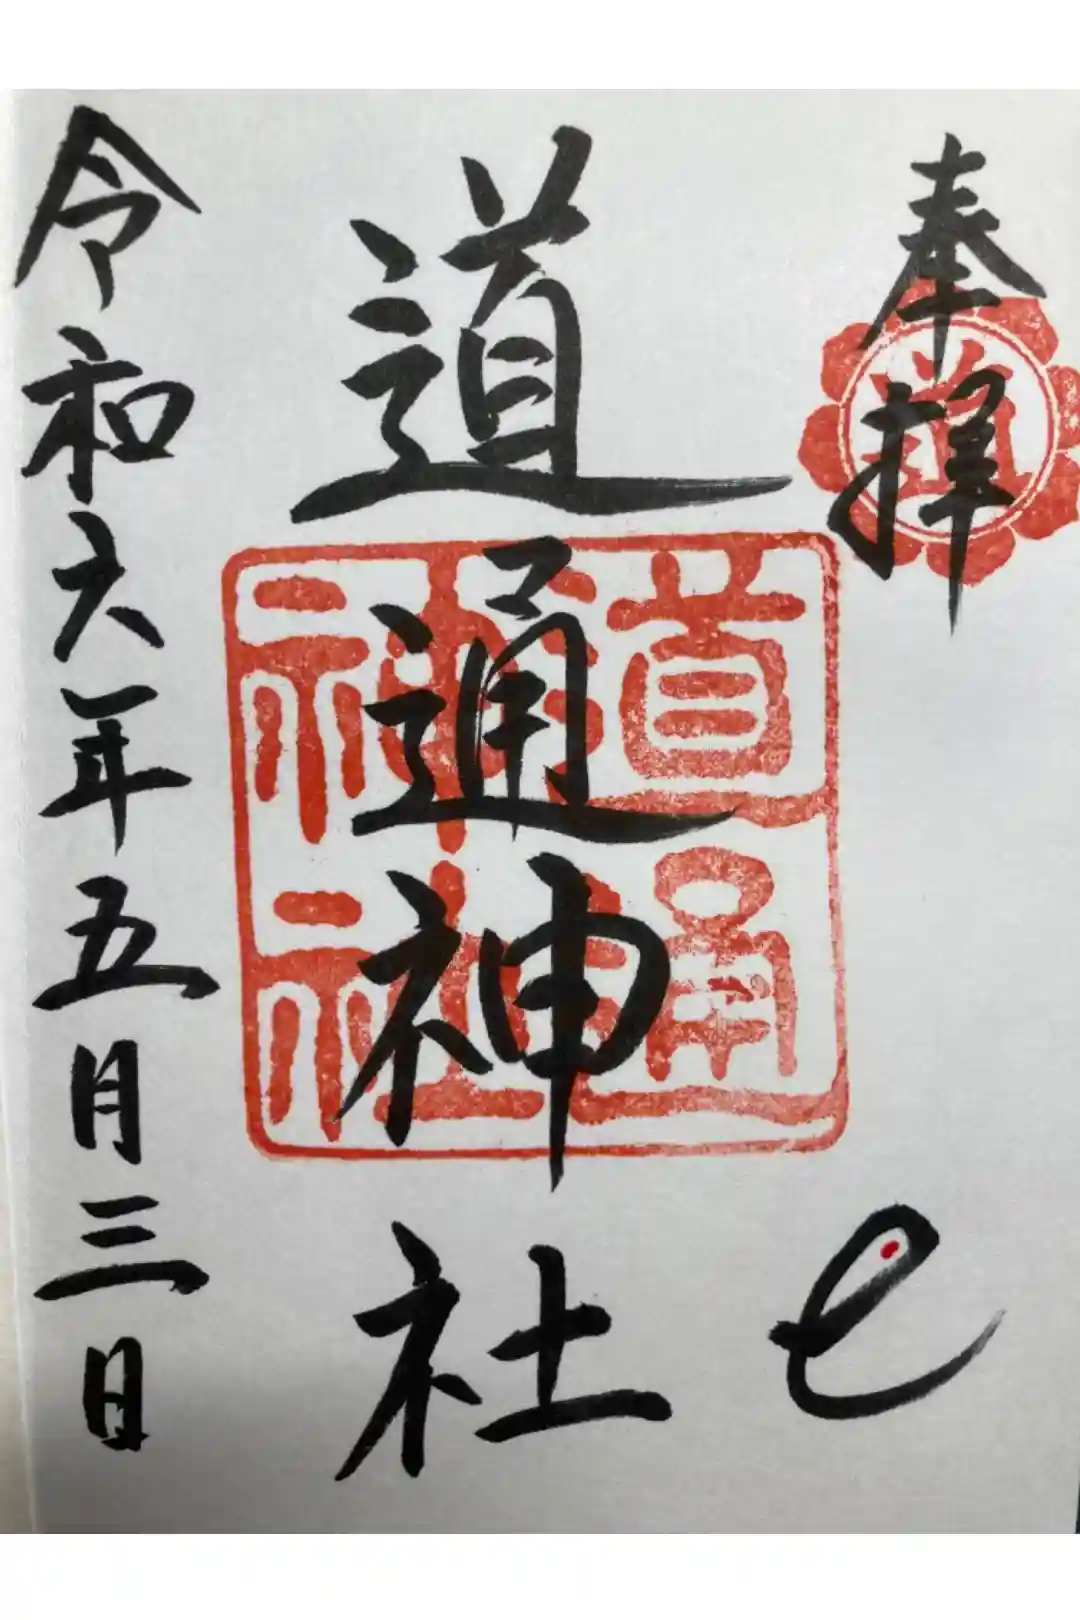 奉拝
道通神社
道通神社
道
令和六年五月三日